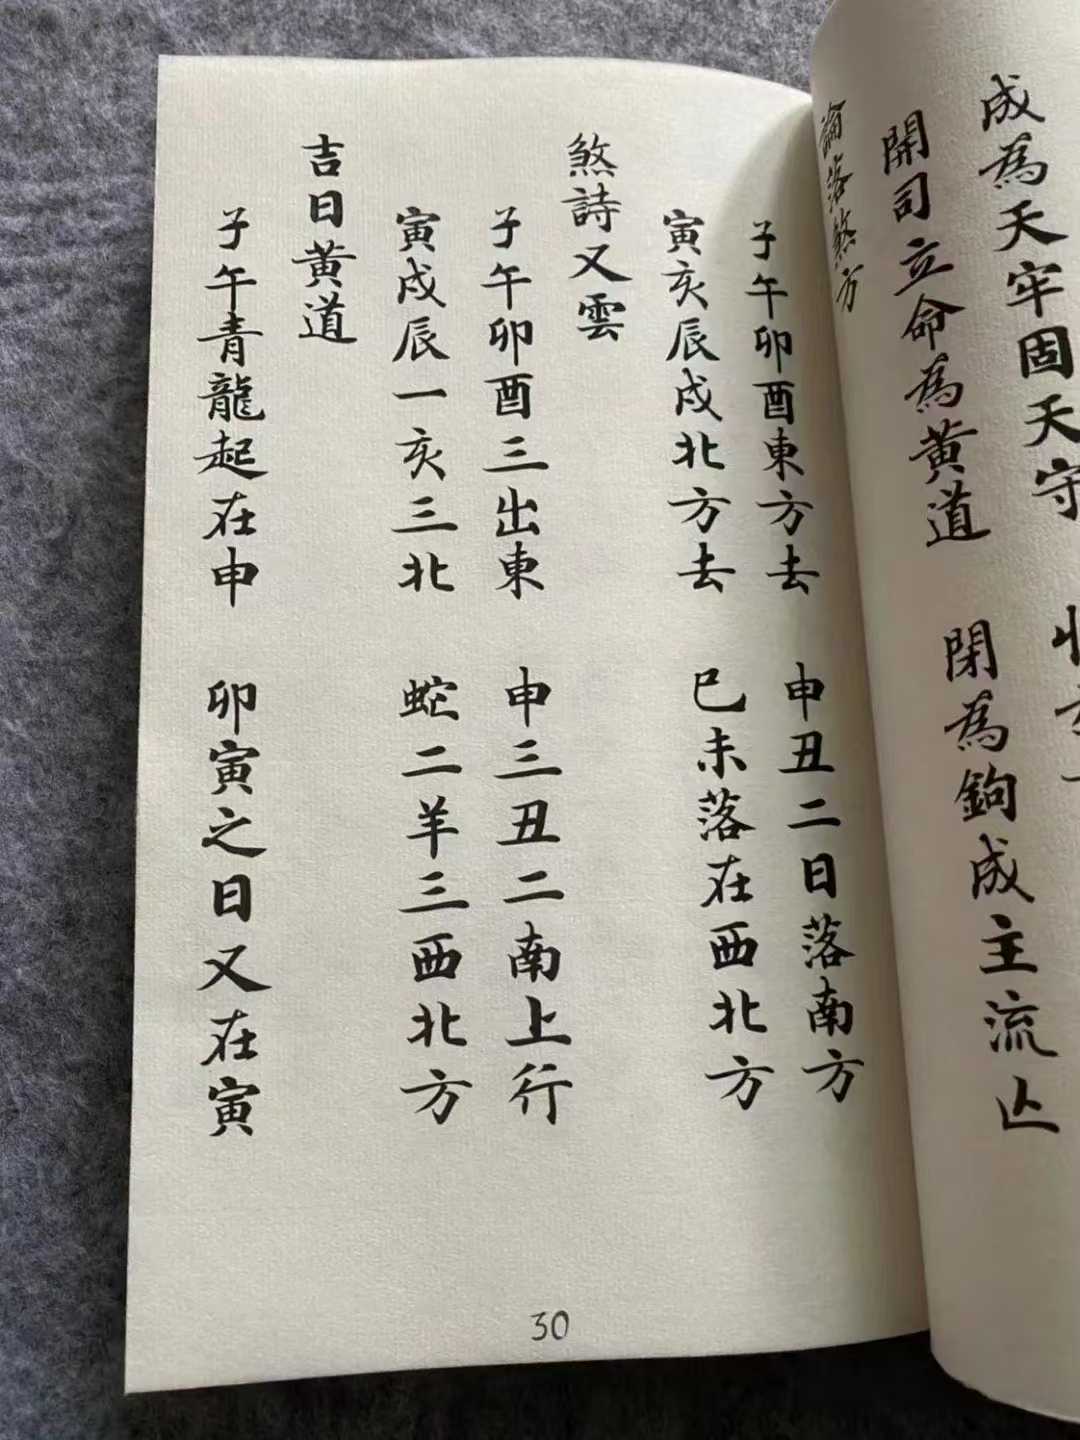 成為天牢固天守
開司立命為黃道 閉為鉤成主流亾
論落煞方
子午卯酉東方去 申丑二日落南方
寅亥辰戌北方去 巳未落在西北方
煞詩又雲
子午卯酉三出東 申三丑二南上行
寅戌辰一亥三北 蛇二羊三西北方
吉日黃道
子午青龍起在申 卯寅之日又在寅
30